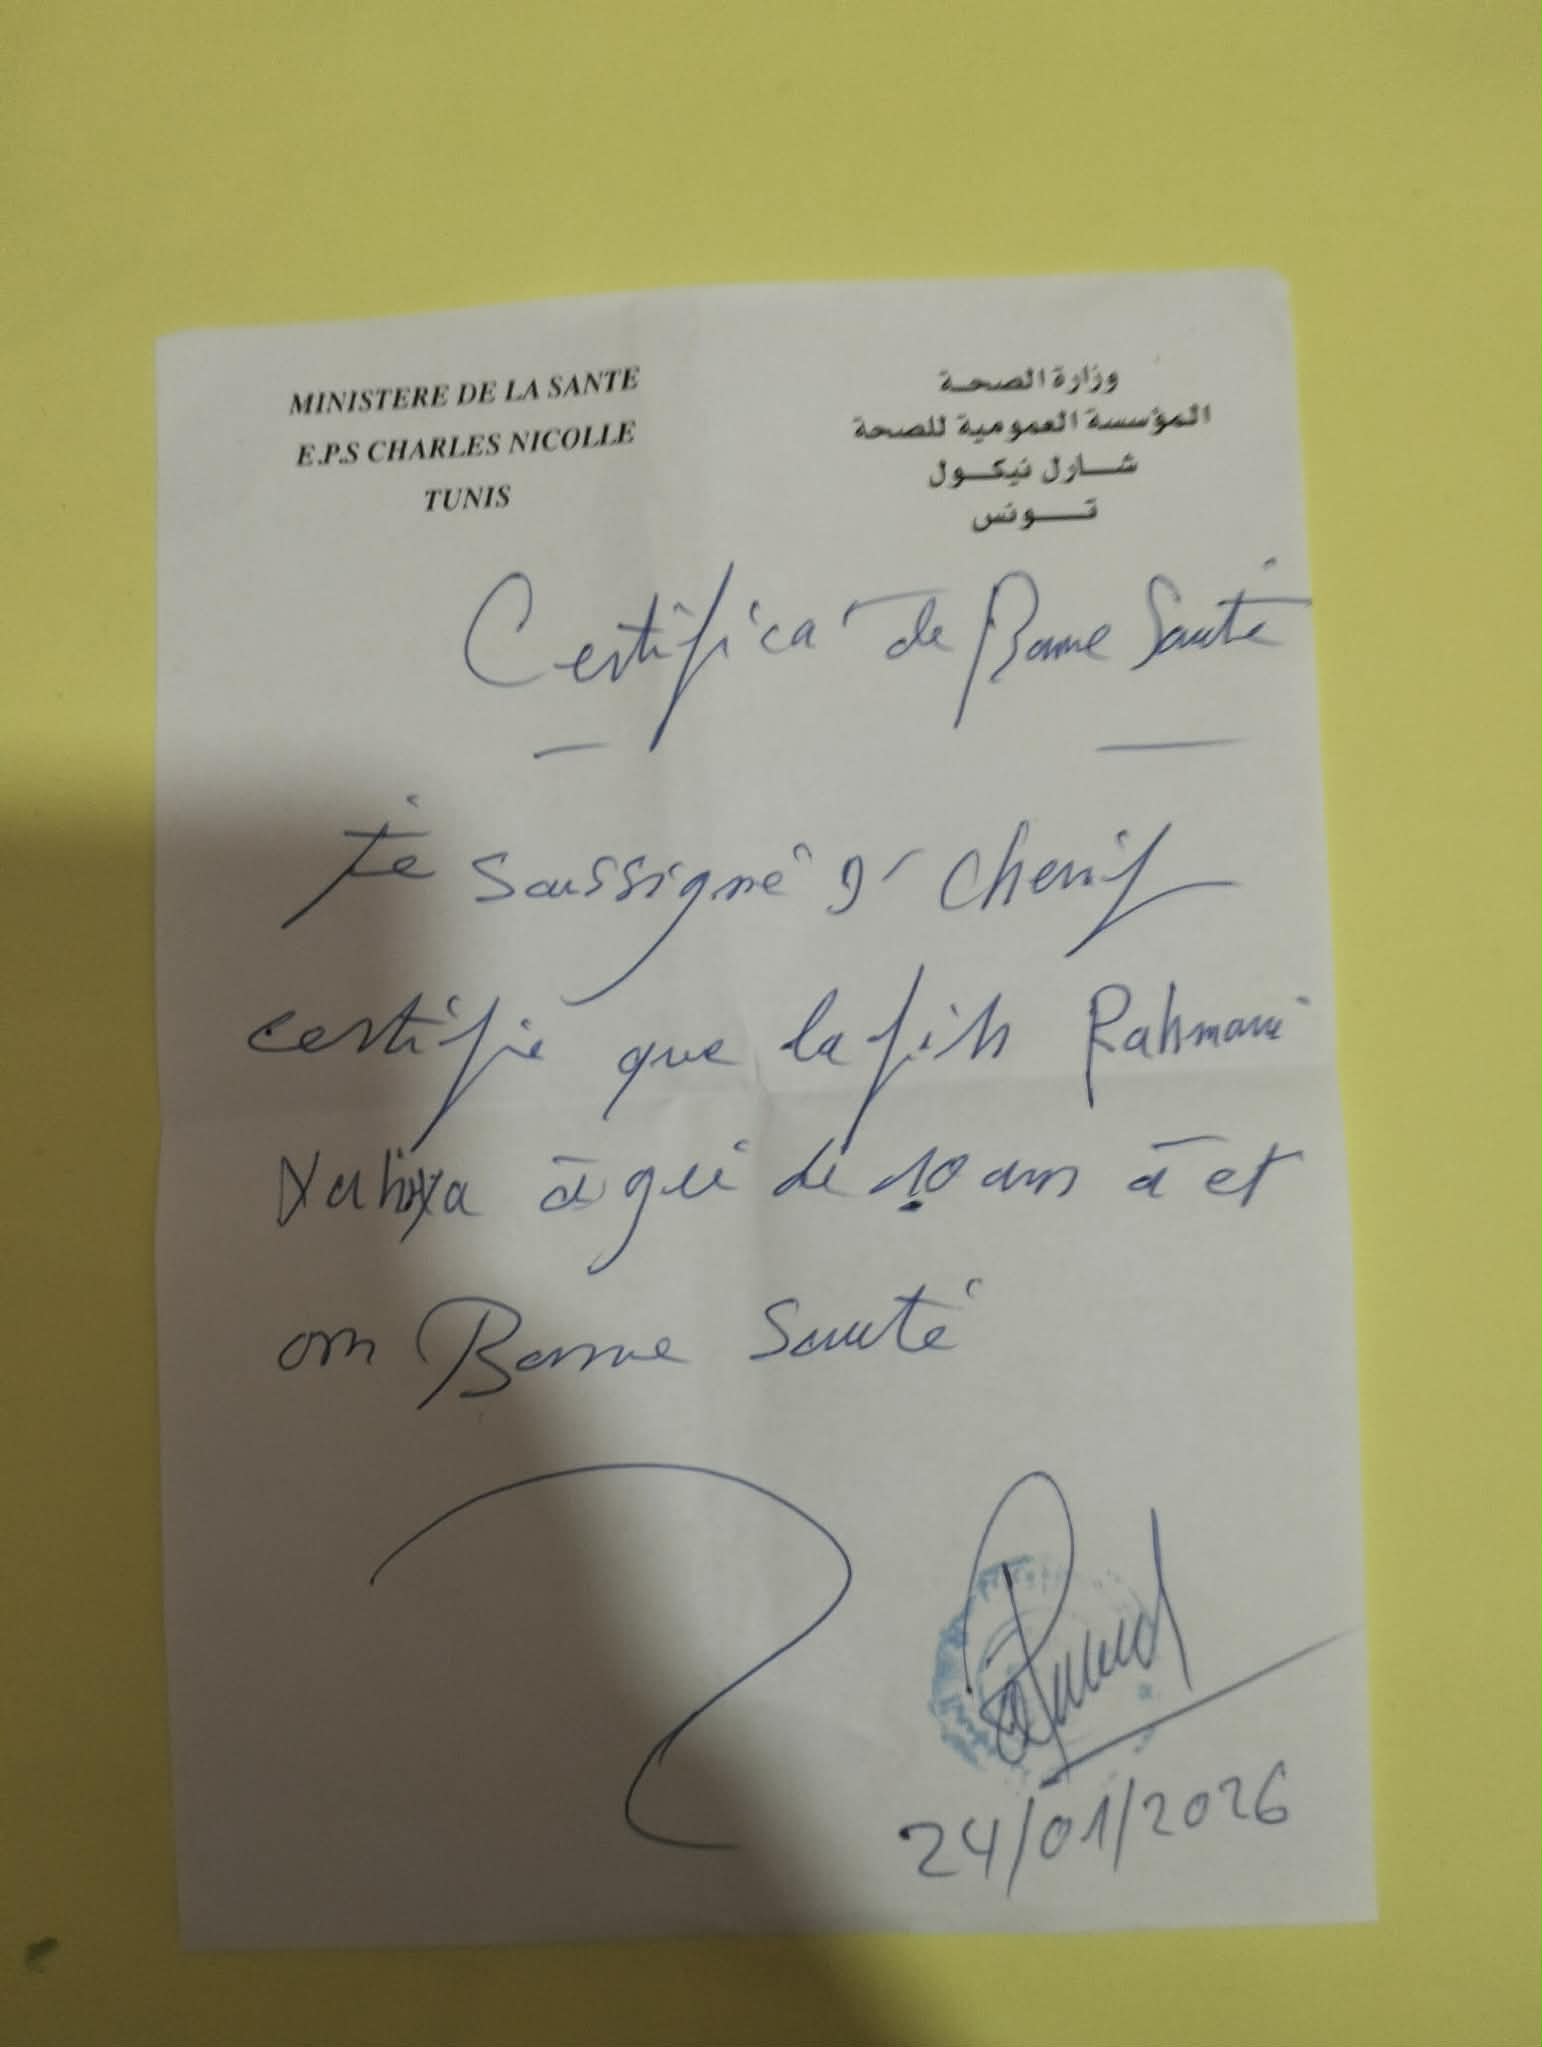 MINISTERE DE LA SANTE
E.P.S CHARLES NICOLLE
TUNIS
وزارة الصحة
المؤسسة العمومية للصحة
شارل نيكول
تونس
Certificat de Bonne Santé
Je soussigné Dr Cherif
certifie que la fille Rahmani
âgée de 10 ans à et
en Bonne Santé
24/01/2026